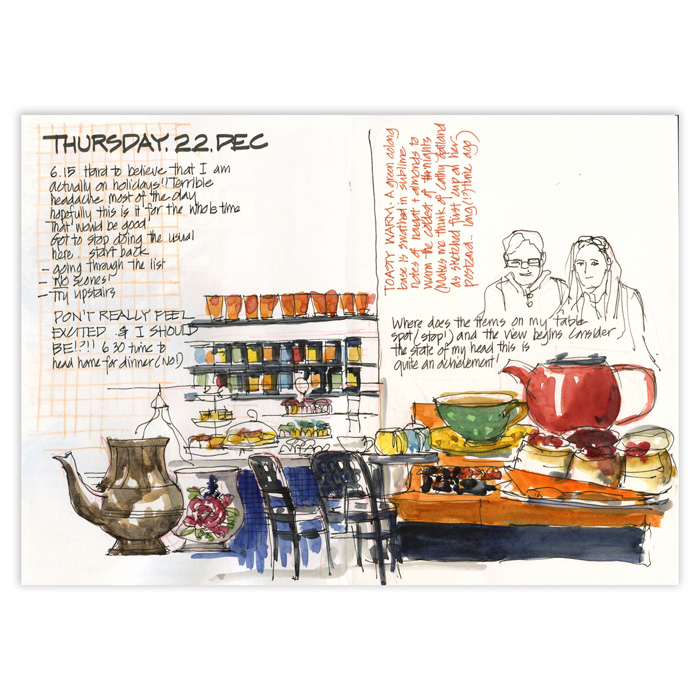 THURSDAY. 22. DEC
6.15 Hard to believe that I am
actually on holidays!! Terrible
headache most of the day
hopefully this is it for the whole time
That would be good!
Got to stop doing the usual
here.. start back
- going through the list
- No scones!
- Try upstairs
DON'T REALLY FEEL
EXCITED & I SHOULD
BE!?!! 6.30 time to
head home for dinner (No!)
TOASTY WARM. A green oolong
base is swathed in sublime
notes of nougat + almonds to
warm the coldest of the nights
(Makes me think of Cathy Gatland
as sketched first cup at her
postcard.. long (!?) time ago)
Where does the items on my table
spot (stop!) and the view begins. Consider
the state of my head this is
quite an achievement!